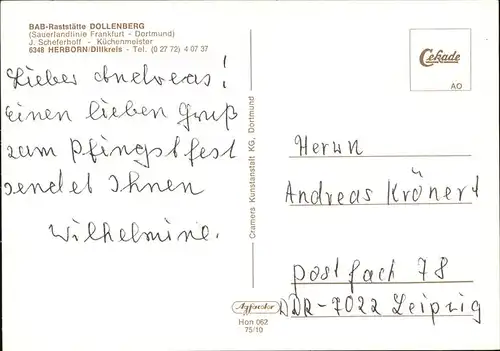 BAB-Raststätte DOLLENBERG
(Sauerlandlinie Frankfurt - Dortmund)
J. Scheferhoff - Küchenmeister
6348 HERBORN/Dillkreis - Tel. (0 27 72) 4 07 37
Lieber Andreas!
Einen lieben Gruß
zum Pfingstfest
sendet Ihnen
Wilhelmine.
Cramers Kunstanstalt KG, Dortmund
Cekade
AO
Herrn
Andreas Krönert
postfach 78
DDR-7022 Leipzig
Agfacolor
Hon 062
75/10